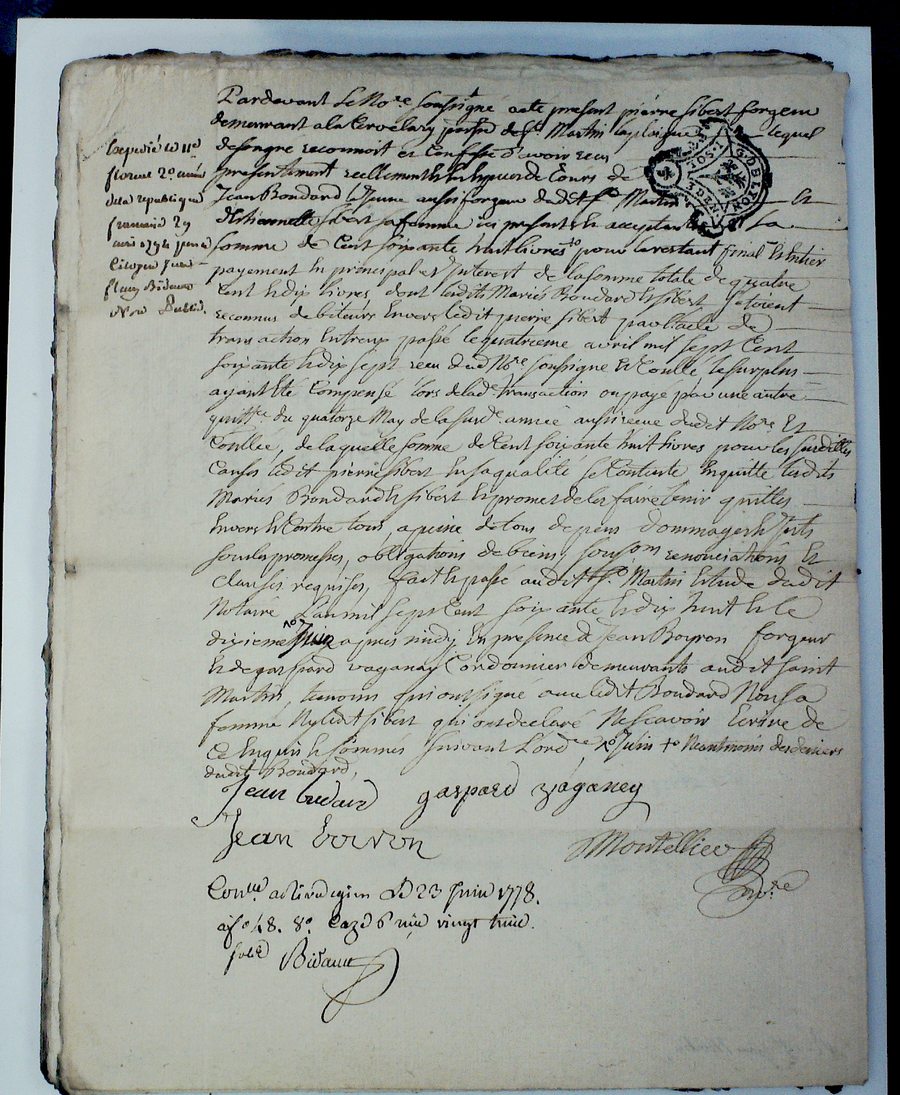 Pardevant le No.re soussigné a été présent pierre sibert forgeur
demeurant a la par.sse de St. Martin la plaine lequel
de son gré reconnoit et confesse d'avoir reçu
presentement reellement en especes de Cours de
Jean Boudard le Jeune aussi forgeur dudit St. Martin Et
d'Estiennette sibert sa femme ici presents et acceptants La
somme de Cent soixante huit livres +o pour le restant final et Entier
payement en principal et Interest de la somme totale de quatre
Cent et dix livres dont lesdits Mariés Boudard et sibert s'étoient
reconnus debiteurs Envers ledit pierre sibert par l'acte de
transaction entreux passé le quatrieme avril mil sept Cent
soixante et dix sept reçu dud No.re soussigné et Coullé le surplus
ayant été Compensé lors de lad.e transaction ou payé par une autre
quitt.ce du quatorze May de la susd.e année aussi reçue dudit No.re Et
Coullée, de laquelle somme de Cent soixante huit livres pour les susdittes
Causes ledit pierre sibert en sa qualité se Contente En quitte lesdits
Mariés Boudard et sibert et promet de les faire tenir quittes
Envers et Contre tous, a peine de tous depens dommages Et Ints
sous les promesses, obligations de biens, renonciations Et
Clauses requises, fait et passé audit St. Martin Etude dudit
Notaire L'an mil sept Cent soixante et dix huit et le
dixieme +o Juin apres midy En presence de Jean Boyron forgeur
et de gaspard vaganay Cordonnier demeurants audit saint
Martin, temoins qui ont signé avec ledit Boudard Non sa
femme Ny ledit sibert qui ont declaré Ne scavoir Ecrire de
Ce Enquis et sommés suivant L'ord.ce +o Juin +o Neantmoins des deniers
dudit Boudard,
Jean budard gaspard vaganey
Jean boiron
Montellier
no.re
Con.lé a Rivedegier Le 23 Juin 1778.
a fo. 48. Ro. Caze 6 reçu vingt huit.
sols Bidaud
Expedié le 11e
floreal 2e année
de la republique
francaise 29
avril 1794 pour le
Citoyen
fleury Bidaud
Nore Public.
G. DE LYON